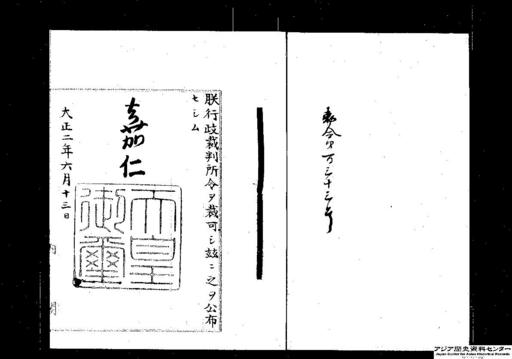 朕行政裁判所令ヲ裁可シ茲ニ之ヲ公布
セシム
嘉仁
天皇
御璽
大正二年六月十三日
アジア歴史資料センター
Japan Center for Asian Historical Records